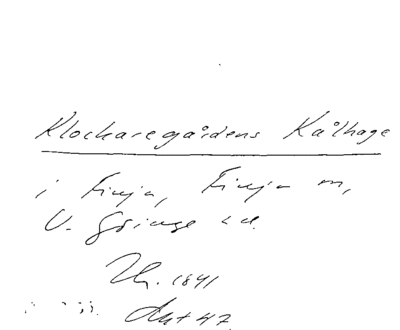 Klockaregårdens Kålhage
i Finja, Finja sn,
V. Göinge hd.
Th. 1841
Akt 47.